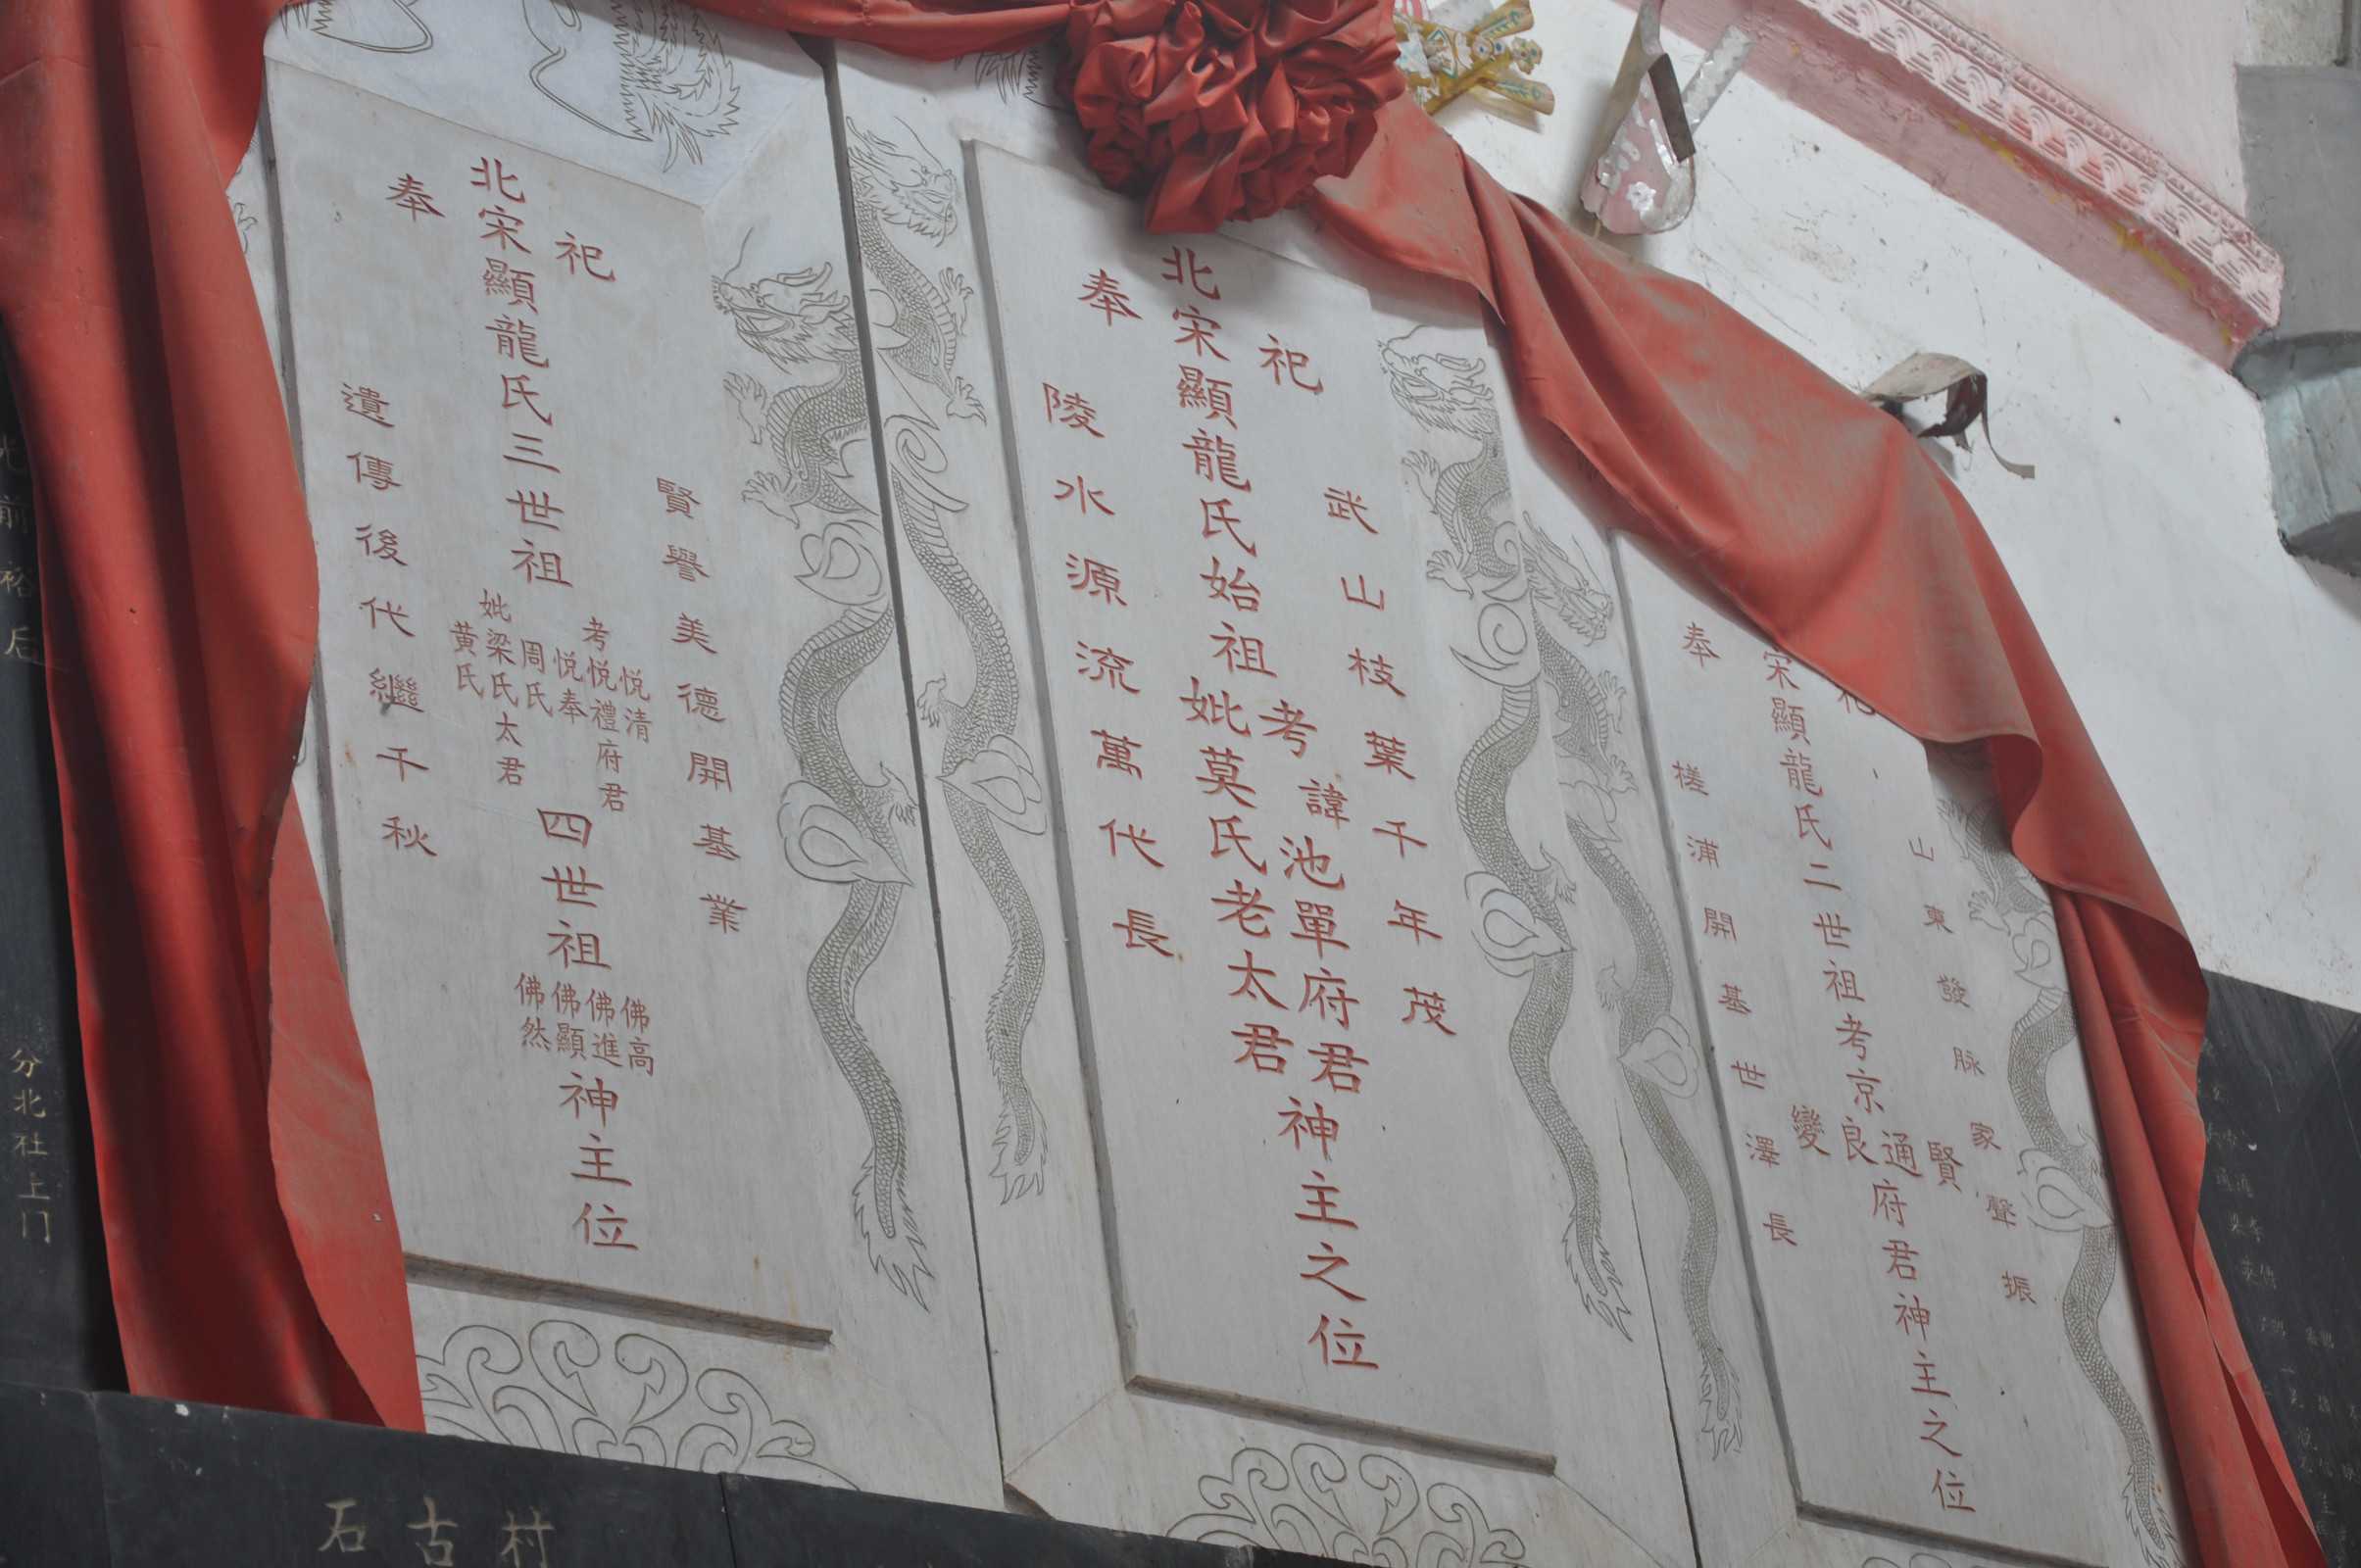 奉祀
北宋顯龍氏三世祖
考悦禮府君
悦清
悦奉
妣梁氏太君
周氏
黃氏
四世祖
佛高
佛進
佛顯
佛然
神主位
賢譽美德開基業
遺傳後代繼千秋
奉祀
北宋顯龍氏始祖
考諱池單府君
妣莫氏老太君
神主之位
武山枝葉千年茂
陵水源流萬代長
奉祀
宋顯龍氏二世祖考京
賢
通
良
變
府君神主之位
山東發脉家聲振
槎浦開基世澤長
前裕后
分北社上门
石古村